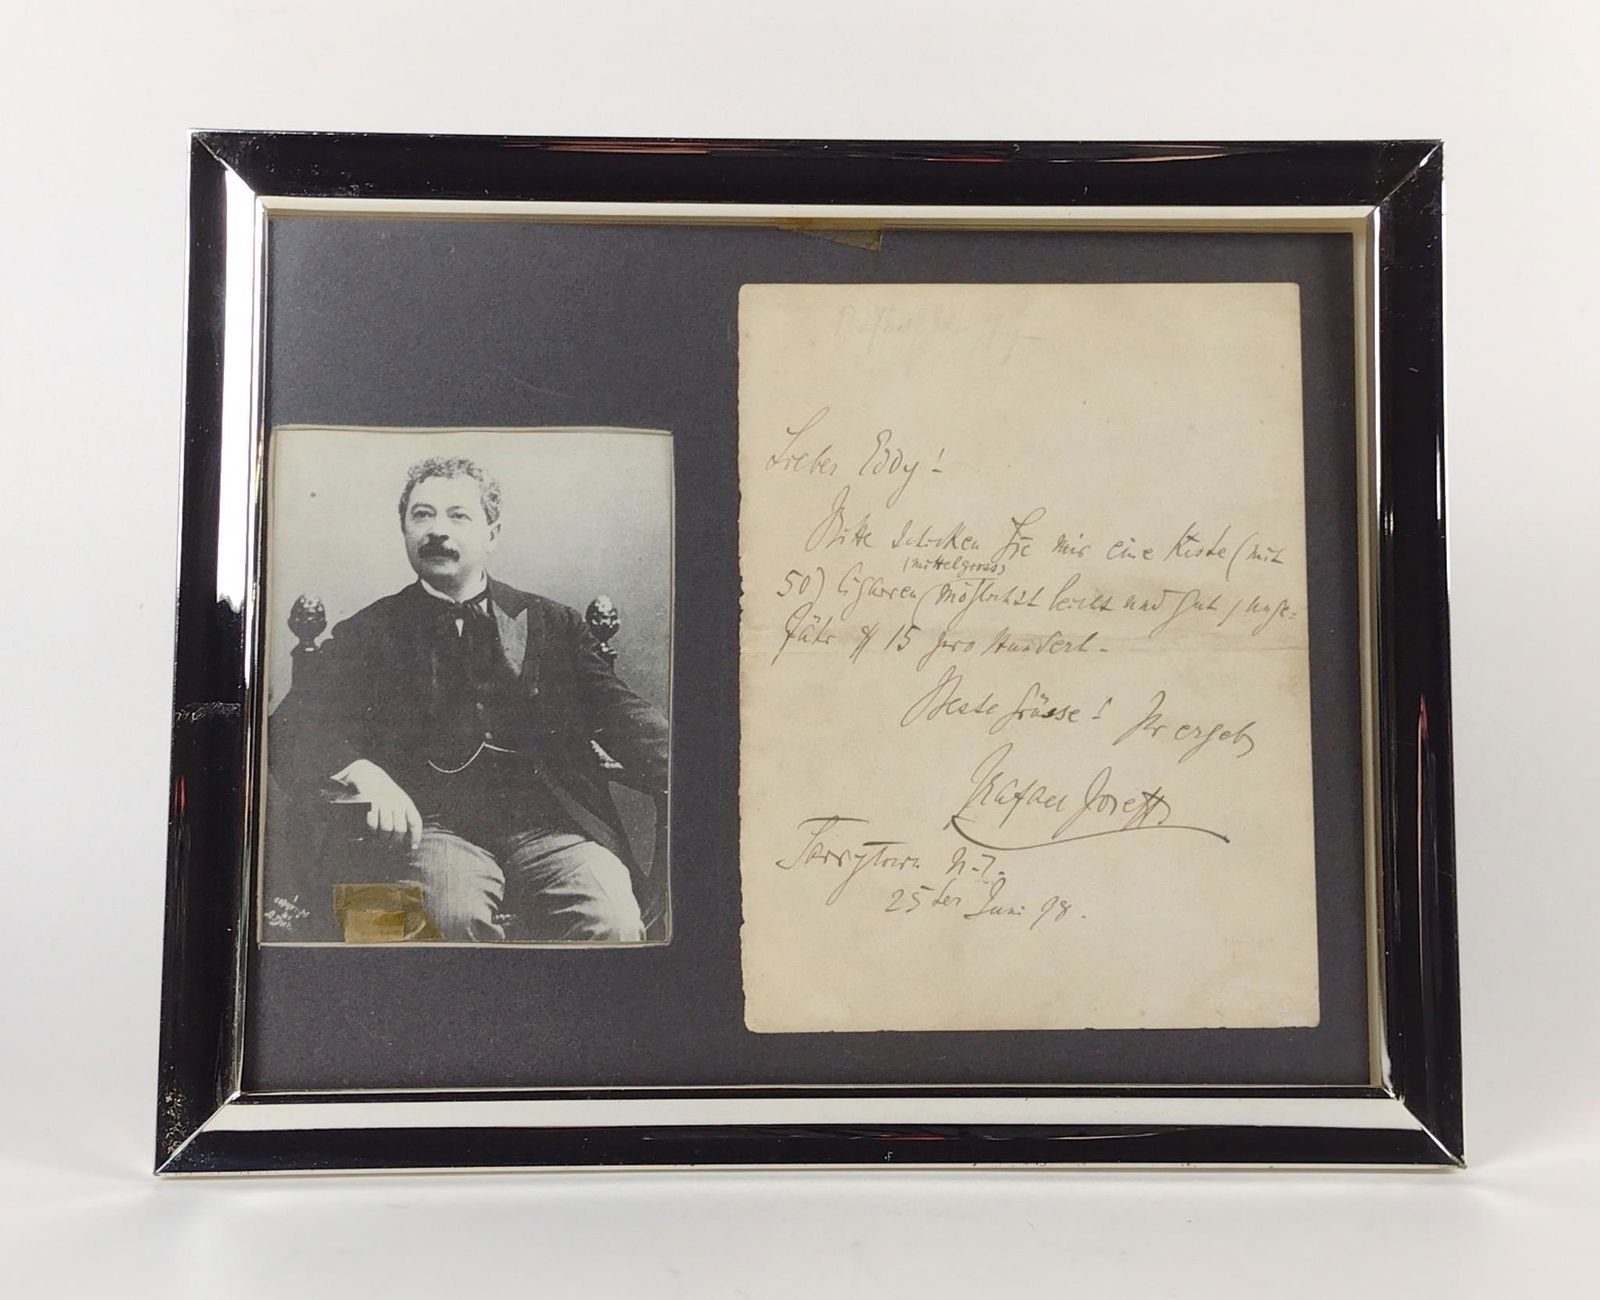 Lieber Eddy!
Bitte schicken Sie mir eine Kiste (mit
(mittelgross)
50) Cigarren (möglichst leicht und gut, unge-
fähr $ 15 pro Hundert.-
Beste Grüsse! Ihr ergeb
Rafael Joseffy
Tarrytown N.Y.
25ter Juni 98.